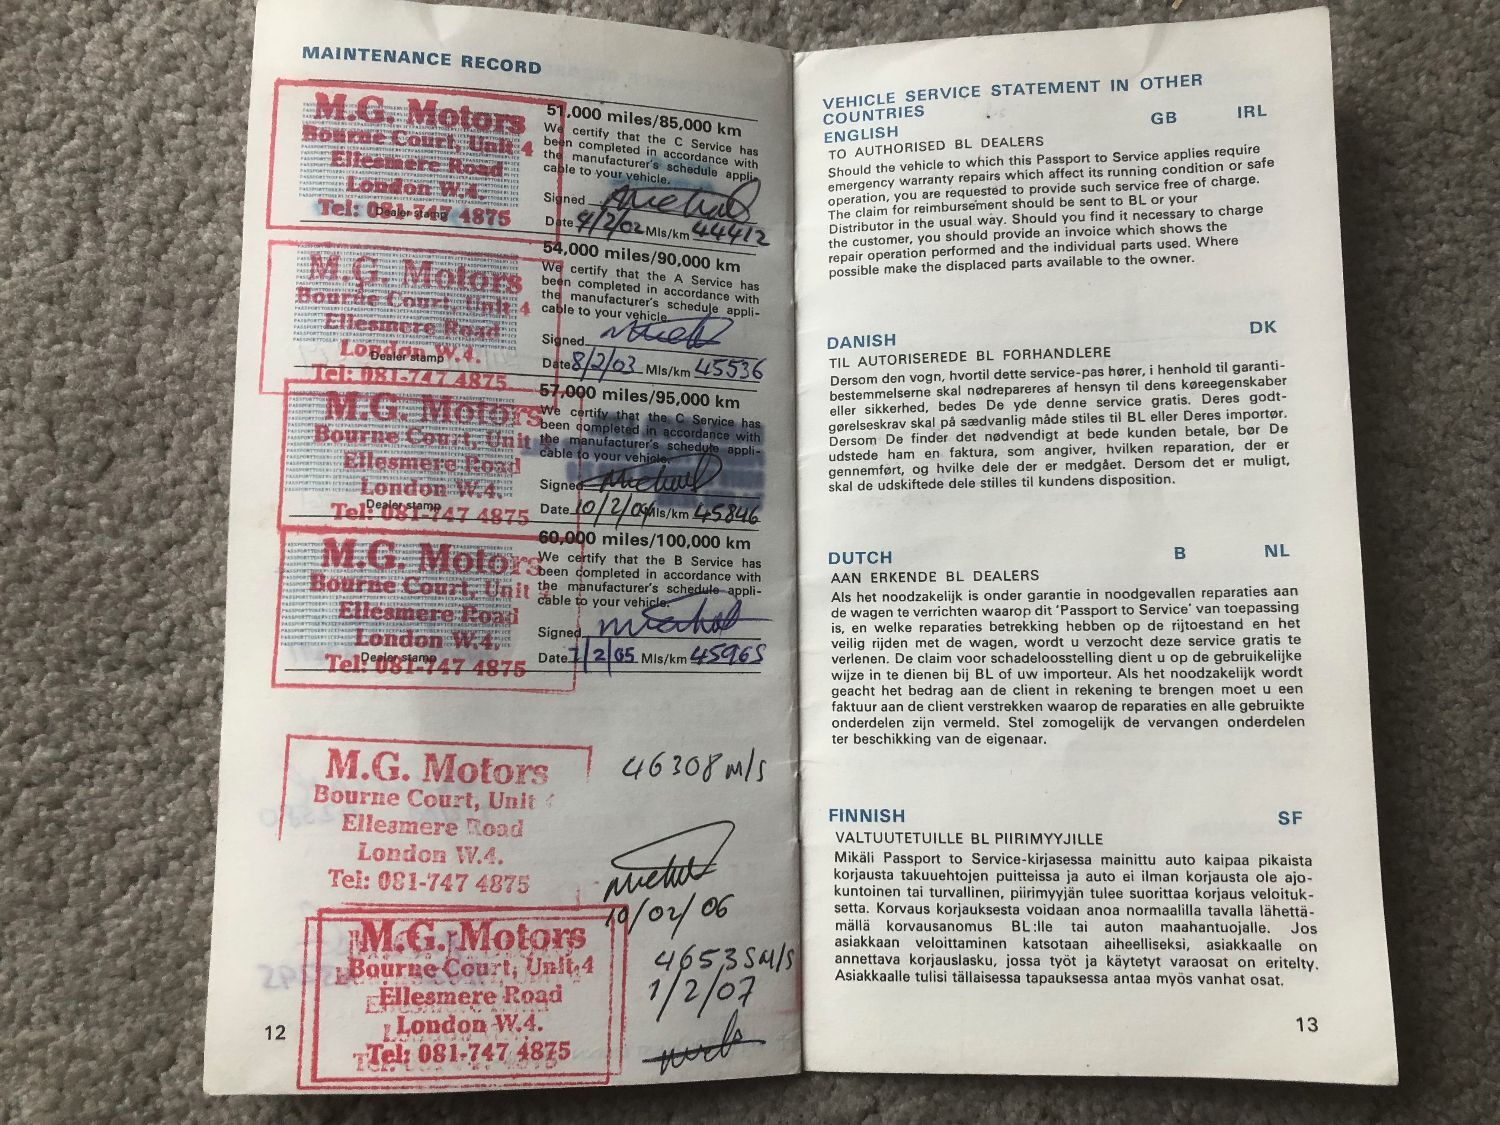 MAINTENANCE RECORD
M.G. Motors
Bourne Court, Unit 4
Ellesmere Road
London W.4.
Dealer stamp
Tel: 081-747 4875
51,000 miles/85,000 km
We certify that the C Service has
been completed in accordance with
the manufacturer's schedule appli-
cable to your vehicle.
Signed
Date 4/2/02 Mls/km 44412
M.G. Motors
Bourne Court, Unit 4
Ellesmere Road
London W.4.
Dealer stamp
Tel: 081-747 4875
54,000 miles/90,000 km
We certify that the A Service has
been completed in accordance with
the manufacturer's schedule appli-
cable to your vehicle.
Signed
Date 8/2/03 Mls/km 45536
M.G. Motors
Bourne Court, Unit
Ellesmere Road
London W.4.
Dealer stamp
Tel: 081-747 4875
57,000 miles/95,000 km
We certify that the C Service has
been completed in accordance with
the manufacturer's schedule appli-
cable to your vehicle.
Signed
Date 10/2/04 Mls/km 45846
M.G. Motors
Bourne Court, Unit
Ellesmere Road
London W.4.
Dealer stamp
Tel: 081-747 4875
60,000 miles/100,000 km
We certify that the B Service has
been completed in accordance with
the manufacturer's schedule appli-
cable to your vehicle.
Signed
Date 7/2/05 Mls/km 45965
M.G. Motors
Bourne Court, Unit 4
Ellesmere Road
London W.4.
Tel: 081-747 4875
46308 M/S
10/02/06
M.G. Motors
Bourne Court, Unit 4
Ellesmere Road
London W.4.
Tel: 081-747 4875
46535 M/S
1/2/07
12
VEHICLE SERVICE STATEMENT IN OTHER
COUNTRIES
ENGLISH GB IRL
TO AUTHORISED BL DEALERS
Should the vehicle to which this Passport to Service applies require
emergency warranty repairs which affect its running condition or safe
operation, you are requested to provide such service free of charge.
The claim for reimbursement should be sent to BL or your
Distributor in the usual way. Should you find it necessary to charge
the customer, you should provide an invoice which shows the
repair operation performed and the individual parts used. Where
possible make the displaced parts available to the owner.
DANISH DK
TIL AUTORISEREDE BL FORHANDLERE
Dersom den vogn, hvortil dette service-pas hører, i henhold til garanti-
bestemmelserne skal nødrepareres af hensyn til dens køreegenskaber
eller sikkerhed, bedes De yde denne service gratis. Deres godt-
gørelseskrav skal på sædvanlig måde stiles til BL eller Deres importør.
Dersom De finder det nødvendigt at bede kunden betale, bør De
udstede ham en faktura, som angiver, hvilken reparation, der er
gennemført, og hvilke dele der er medgået. Dersom det er muligt,
skal de udskiftede dele stilles til kundens disposition.
DUTCH B NL
AAN ERKENDE BL DEALERS
Als het noodzakelijk is onder garantie in noodgevallen reparaties aan
de wagen te verrichten waarop dit 'Passport to Service' van toepassing
is, en welke reparaties betrekking hebben op de rijtoestand en het
veilig rijden met de wagen, wordt u verzocht deze service gratis te
verlenen. De claim voor schadeloosstelling dient u op de gebruikelijke
wijze in te dienen bij BL of uw importeur. Als het noodzakelijk wordt
geacht het bedrag aan de client in rekening te brengen moet u een
faktuur aan de client verstrekken waarop de reparaties en alle gebruikte
onderdelen zijn vermeld. Stel zomogelijk de vervangen onderdelen
ter beschikking van de eigenaar.
FINNISH SF
VALTUUTETUILLE BL PIIRIMYYJILLE
Mikäli Passport to Service-kirjasessa mainittu auto kaipaa pikaista
korjausta takuuehtojen puitteissa ja auto ei ilman korjausta ole ajo-
kuntoinen tai turvallinen, piirimyyjän tulee suorittaa korjaus veloituk-
setta. Korvaus korjauksesta voidaan anoa normaalilla tavalla lähettä-
mällä korvausanomus BL:lle tai auton maahantuojalle. Jos
asiakkaan veloittaminen katsotaan aiheelliseksi, asiakkaalle on
annettava korjauslasku, jossa työt ja käytetyt varaosat on eritelty.
Asiakkaalle tulisi tällaisessa tapauksessa antaa myös vanhat osat.
13